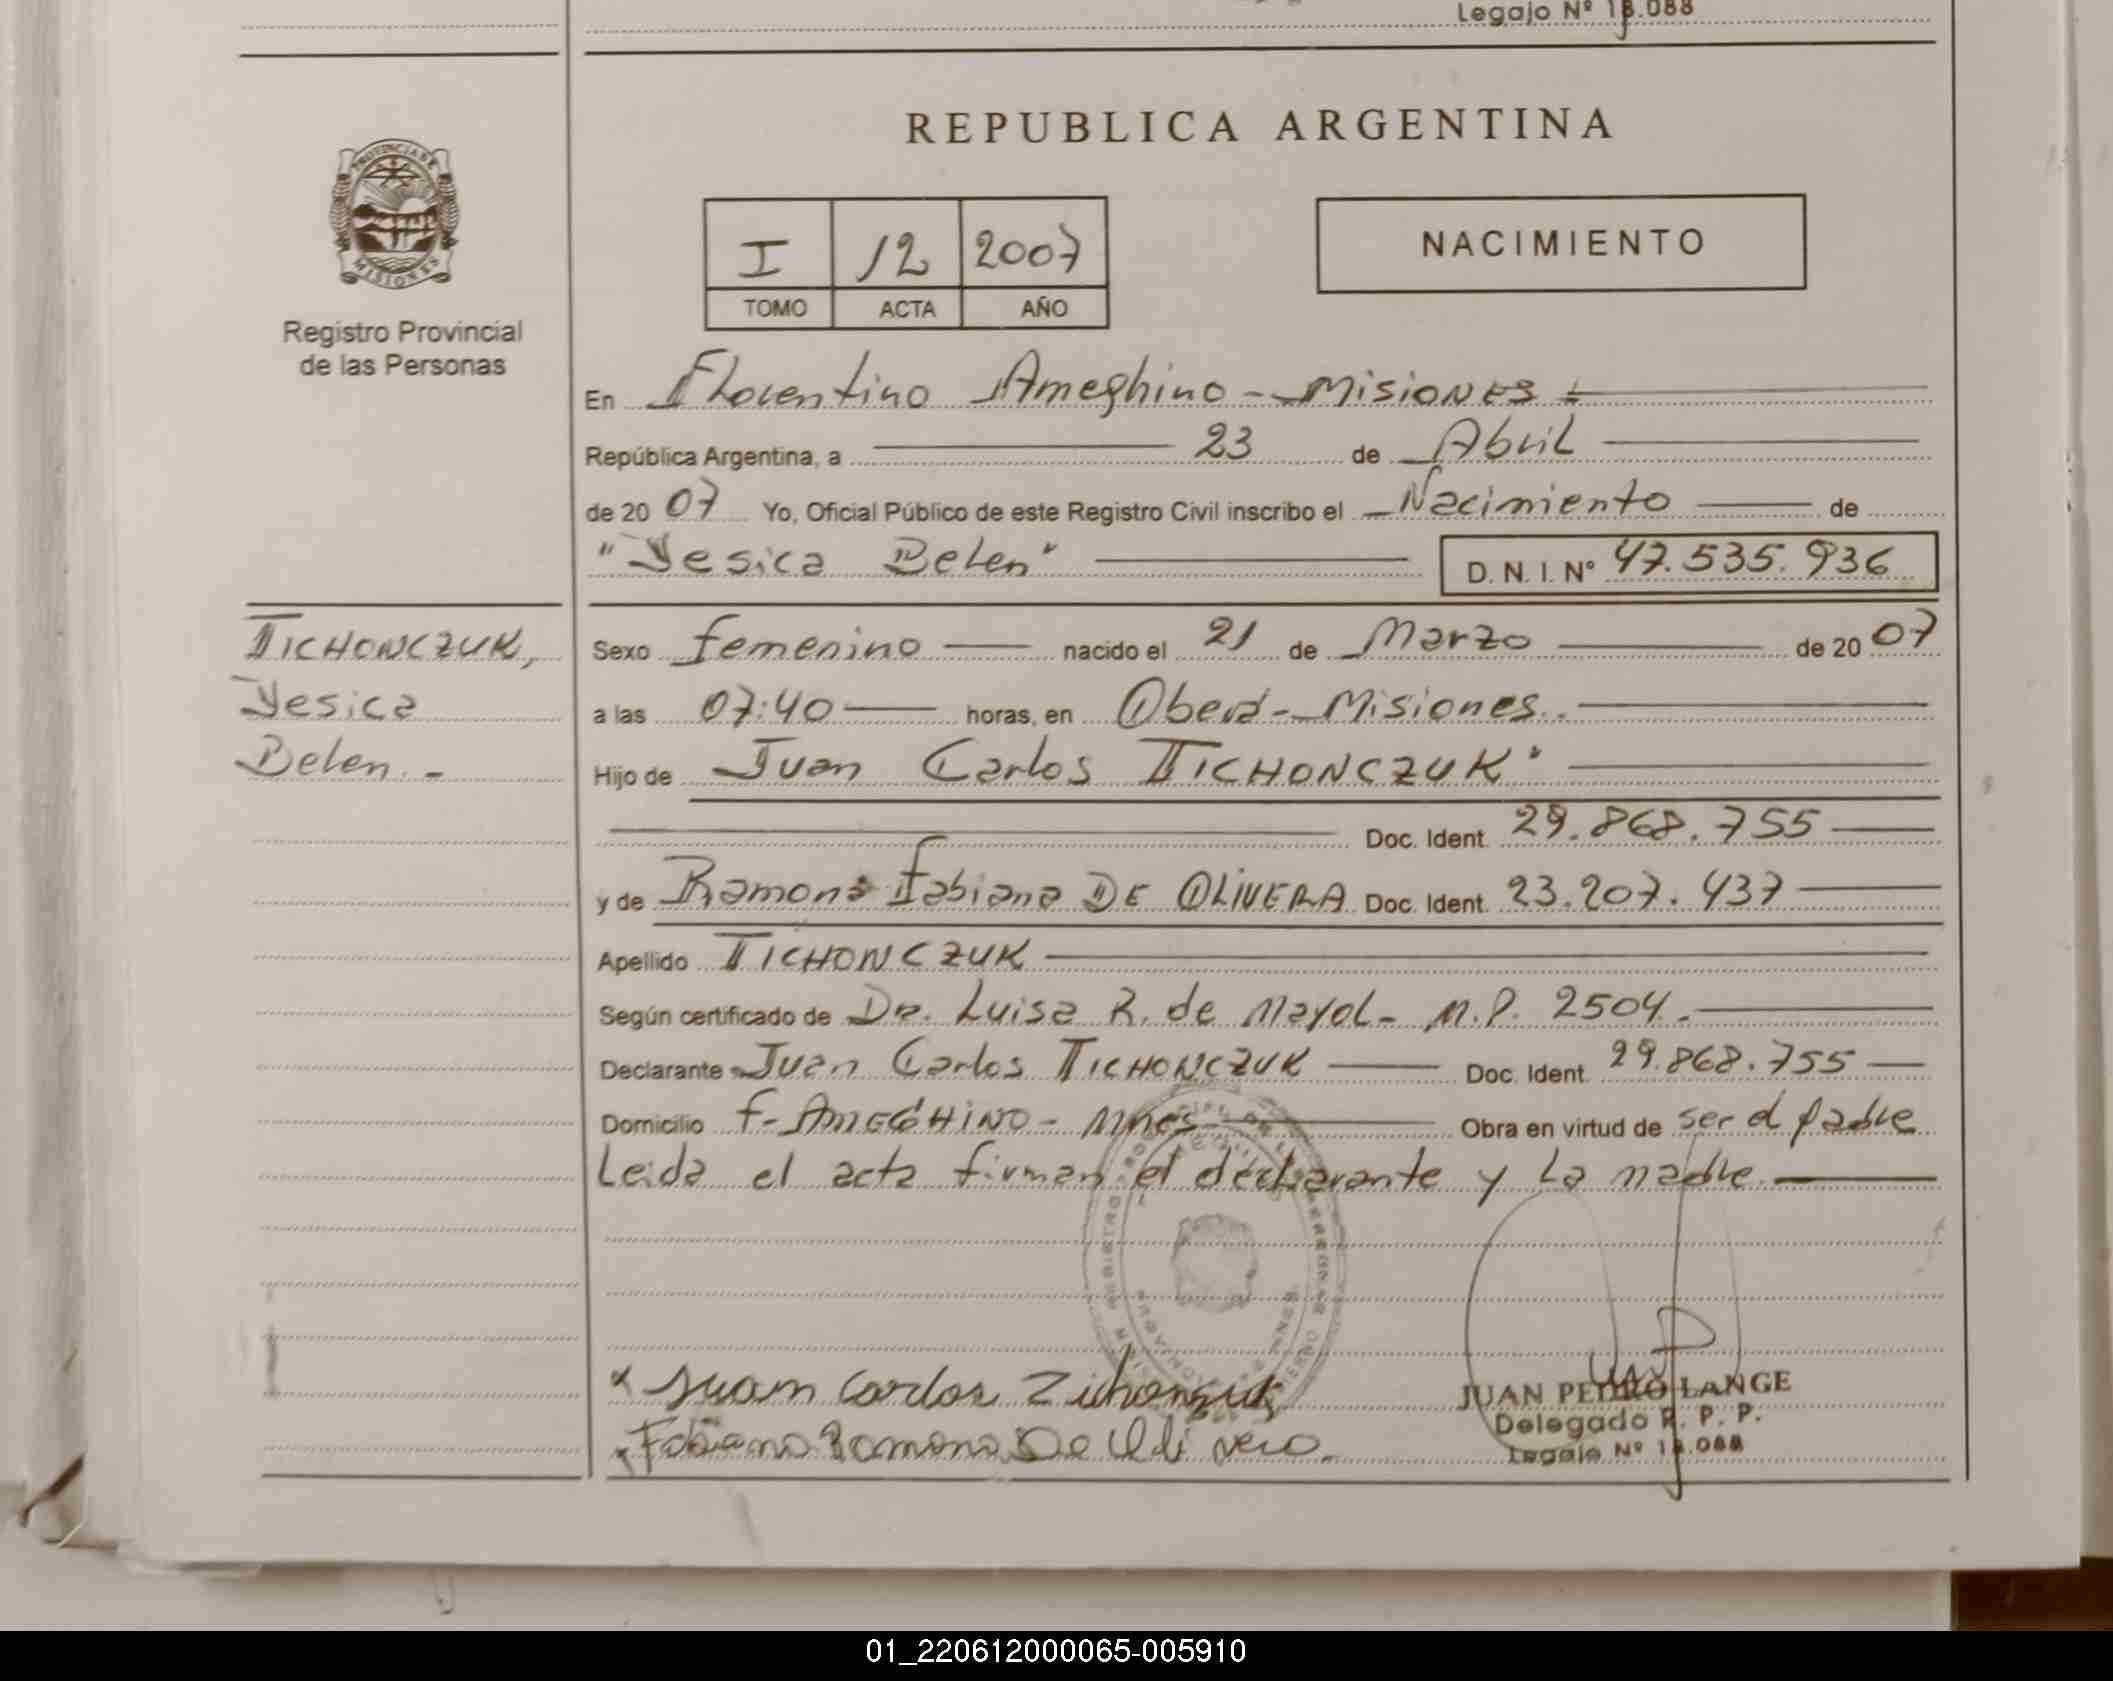 Legajo Nº 18.088
REPUBLICA ARGENTINA
PROVINCIA DE
MISIONES
Registro Provincial
de las Personas
I 12 2007
TOMO ACTA AÑO
NACIMIENTO
En Florentino Ameghino - Misiones
República Argentina, a 23 de Abril
de 20 07 Yo, Oficial Público de este Registro Civil inscribo el Nacimiento de
"Yesica Belen" D. N. I. Nº 47.535.936
TICHONCZUK,
Yesica
Belen.-
Sexo femenino nacido el 21 de Marzo de 20 07
a las 07:40 horas, en Oberá - Misiones.
Hijo de Juan Carlos TICHONCZUK
Doc. Ident. 29.868.755
y de Ramona Fabiana DE OLIVERA Doc. Ident. 23.207.437
Apellido TICHONCZUK
Según certificado de Dra. Luisa R. de Mayol - M.P. 2504.
Declarante Juan Carlos TICHONCZUK Doc. Ident. 29.868.755
Domicilio F- AMEGHINO - Mnes Obra en virtud de ser el padre
Leida el acta firman el declarante y la madre
Juan Carlos
Fabiana Ramona De Oli vera.
JUAN PEDRO LANGE
Delegado R. P. P.
Legajo Nº 18.088
01_220612000065-005910